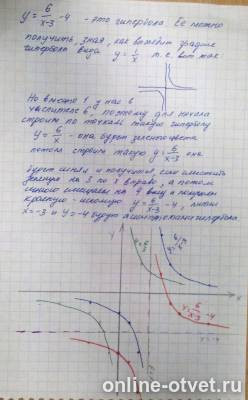 y = 6/(x-3) - 4 - это гипербола. Её можно
получить, зная, как выглядит график
гиперболы вида y = 1/x т.е. вот так
Но вместо 1, у нас 6
в числителе, поэтому для начала
строим по точкам такую гиперболу
y = 6/x - она будет зелёного цвета
потом строим такую y = 6/(x-3) она
будет синяя и получится, если сместить
зелёную на 3 по x вправо, а потом
синюю смещаем на 4 вниз и получаем
красную - искомую y = 6/(x-3) - 4,
x = -3 и y = -4 будут асимптотами гиперболы
y
y = 6/x
y = 6/(x-3)
y = 6/(x-3) - 4
x
y = -4
online-otvet.ru